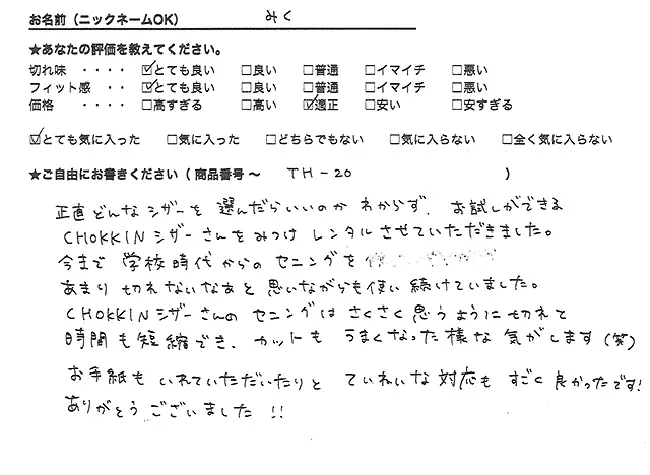 お名前（ニックネームOK） みく
★あなたの評価を教えてください。
切れ味 ・・・・ ☑とても良い □良い □普通 □イマイチ □悪い
フィット感 ・・ ☑とても良い □良い □普通 □イマイチ □悪い
価格 ・・・・ □高すぎる □高い ☑適正 □安い □安すぎる
☑とても気に入った □気に入った □どちらでもない □気に入らない □全く気に入らない
★ご自由にお書きください（商品番号～ TH-20 ）
正直どんなシザーを選んだらいいのかわからず、お試しができる
CHOKKINシザーさんをみつけレンタルさせていただきました。
今まで学校時代からのセニングを
あまり切れないなあと思いながらも使い続けていました。
CHOKKINシザーさんのセニングはさくさく思うように切れて
時間も短縮でき、カットもうまくなった様な気がします(笑)
お手紙もいれていただいたりとていねいな対応もすごく良かったです!
ありがとうございました!!